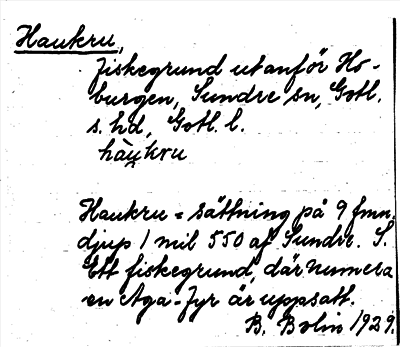 Haukru,
fiskegrund utanför Ho-
burgen, Sundre sn, Gotl.
s. hd, Gotl. l.
hàu̯kru
Haukru = sättning på 9 fmn.
djup 1 mil SSO af Sundre. S.
Ett fiskegrund, där numera
en Aga-fyr är uppsatt.
B. Bolin 1929.